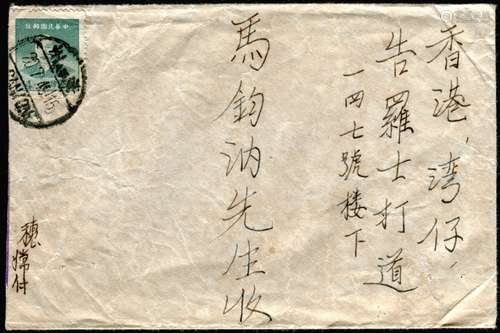 香港,湾仔,
告羅士打道
一四七號楼下
馬鈞汭先生收
穗
中華民國郵政